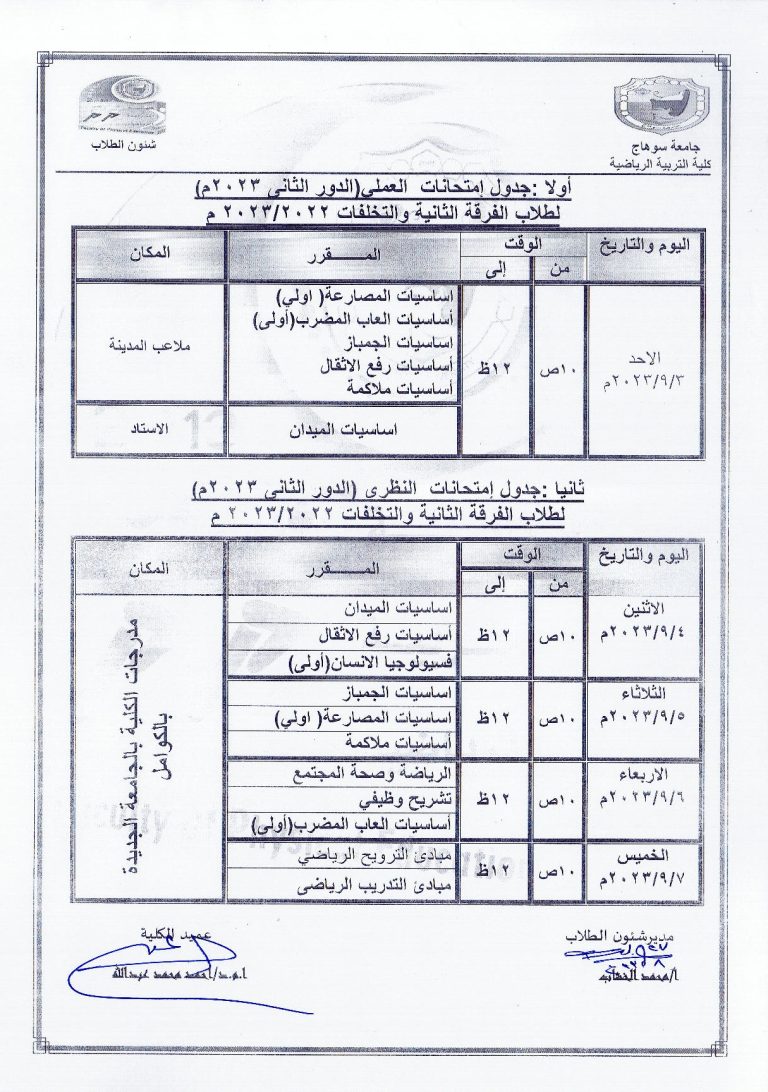 جامعة سوهاج
كلية التربية الرياضية
شئون الطلاب
أولا :جدول إمتحانات العملي(الدور الثانى ٢٠٢٣م)
لطلاب الفرقة الثانية والتخلفات ٢٠٢٣/٢٠٢٢ م
اليوم والتاريخ الوقت المـــــقرر المكان
من إلى
الاحد
٢٠٢٣/٩/٣م
١٠ص ١٢ظ
اساسيات المصارعة( اولي)
أساسيات العاب المضرب(أولى)
اساسيات الجمباز
أساسيات رفع الاثقال
أساسيات ملاكمة
ملاعب المدينة
اساسيات الميدان الاستاد
ثانيا :جدول إمتحانات النظرى (الدور الثانى ٢٠٢٣م)
لطلاب الفرقة الثانية والتخلفات ٢٠٢٣/٢٠٢٢ م
اليوم والتاريخ الوقت المـــــقرر المكان
من إلى
الاثنين
٢٠٢٣/٩/٤م
١٠ص ١٢ظ
اساسيات الميدان
أساسيات رفع الاثقال
فسيولوجيا الانسان(أولى)
الثلاثاء
٢٠٢٣/٩/٥م
١٠ص ١٢ظ
اساسيات الجمباز
اساسيات المصارعة( اولي)
أساسيات ملاكمة
الاربعاء
٢٠٢٣/٩/٦م
١٠ص ١٢ظ
الرياضة وصحة المجتمع
تشريح وظيفي
أساسيات العاب المضرب(أولى)
الخميس
٢٠٢٣/٩/٧م
١٠ص ١٢ظ
مبادئ الترويح الرياضي
مبادئ التدريب الرياضى
مدرجات الكلية بالجامعة الجديدة
بالكوامل
مديرشئون الطلاب
أ/محمد
عميد الكلية
ا.م.د/أحمد محمد عبدالله